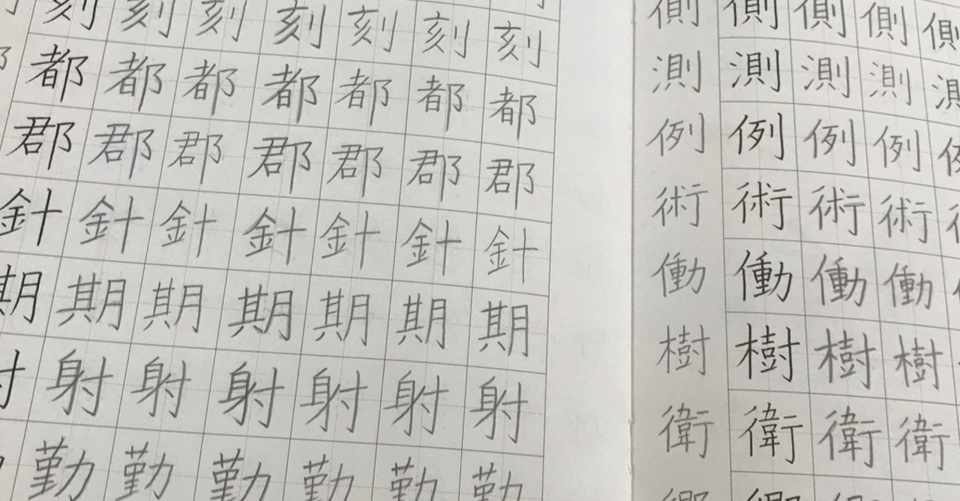 刻 刻 刻 刻 刻 刻 刻
都 都 都 都 都 都 都
郡 郡 郡 郡 郡 郡 郡
針 針 針 針 針 針 針
期 期 期 期 期 期 期
射 射 射 射 射 射
勤 勤 勤 勤 勤 勤
側 側 側 側 側
測 測 測 測
例 例 例 例
術 術 術 術
働 働 働 働
樹 樹 樹 樹
衛 衛 衛 衛